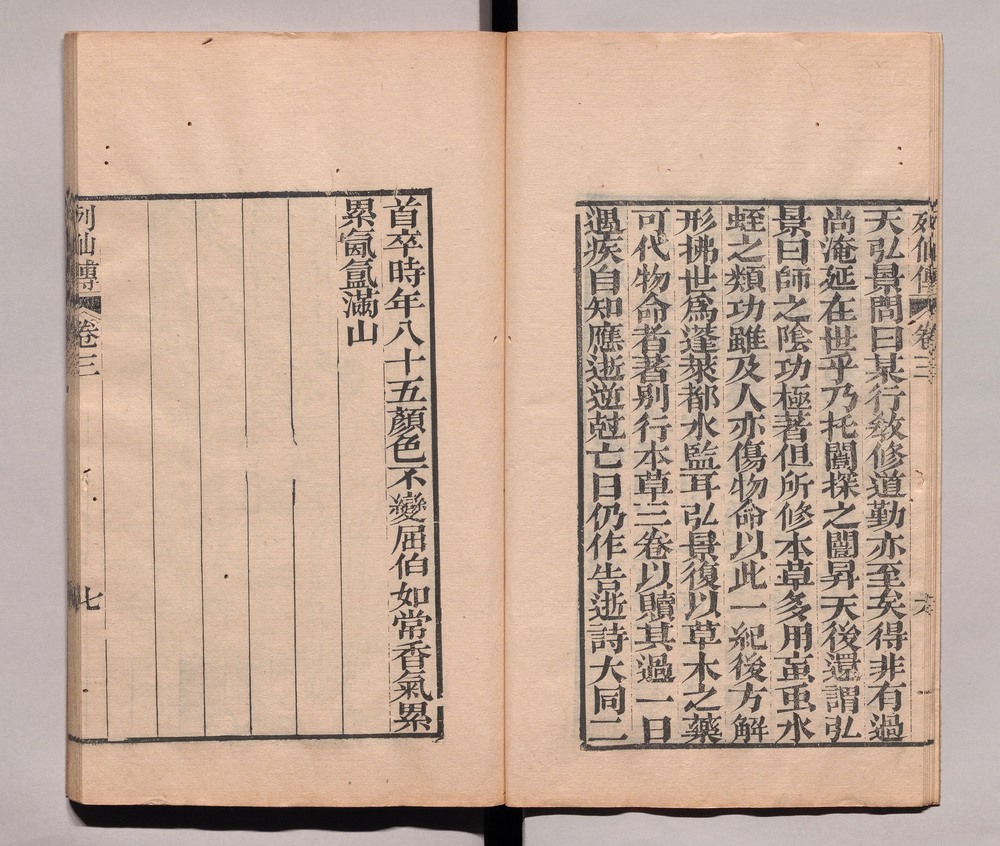 列仙傳 卷三 六
天弘景問曰某行教修道勤亦至矣得非有過
尚淹延在世乎乃托闓探之闓昇天後還謂弘
景曰師之陰功極著但所修本草多用䖟虫水
蛭之類功雖及人亦傷物命以此一紀後方解
形拂世為蓬萊都水監耳弘景復以草木之藥
可代物命者著別行本草三卷以贖其過一日
遇疾自知應逝逆尅亡日仍作告逝詩大同二
首卒時年八十五顏色不變屈伯如常香氣累
累氤氳滿山
列仙傳 卷三 七